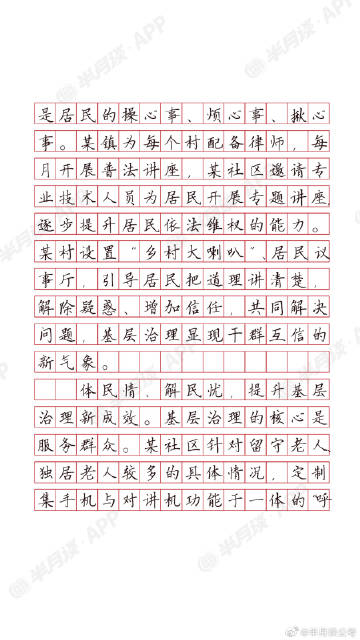 是居民的操心事、烦心事、揪心
事。某镇为每个村配备律师，每
月开展普法讲座，某社区邀请专
业技术人员为居民开展专题讲座，
逐步提升居民依法维权的能力。
某村设置“乡村大喇叭”、居民议
事厅，引导居民把道理讲清楚，
解除疑惑、增加信任，共同解决
问题，基层治理显现干群互信的
新气象。
体民情、解民忧，提升基层
治理新成效。基层治理的核心是
服务群众。某社区针对留守老人、
独居老人较多的具体情况，定制
集手机与对讲机功能于一体的呼
半月谈·APP
半月谈·APP
半月谈·APP
半月谈·APP
@半月谈公考